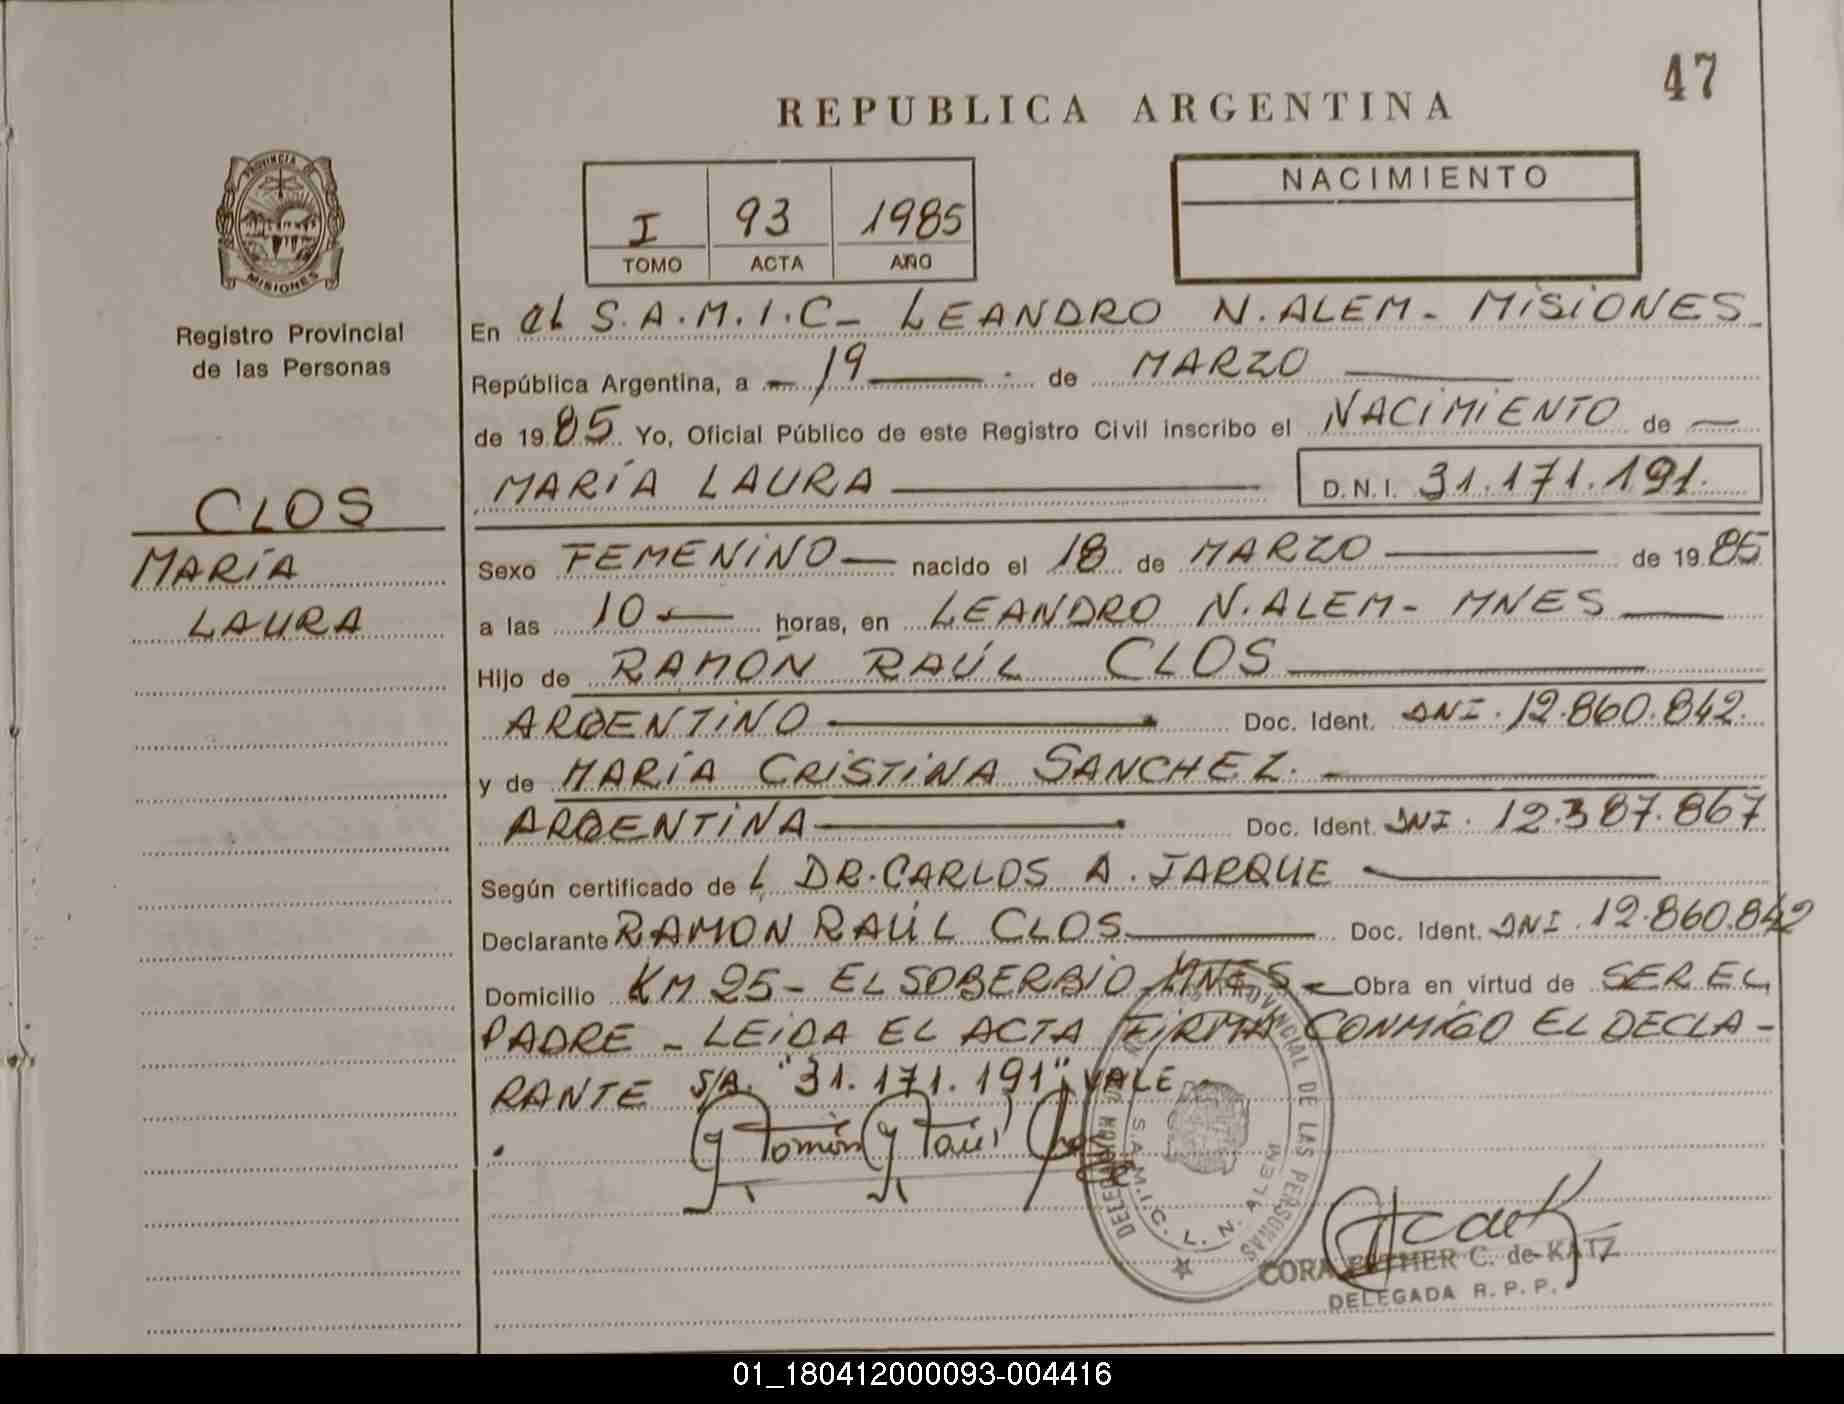 47
REPUBLICA ARGENTINA
PROVINCIA DE
MISIONES
Registro Provincial
de las Personas
I 93 1985
TOMO ACTA AÑO
NACIMIENTO
En el S.A.M.I.C - LEANDRO N. ALEM - MISIONES
República Argentina, a - 19 — de MARZO —
de 19 85 Yo, Oficial Público de este Registro Civil inscribo el NACIMIENTO de —
MARÍA LAURA — D.N.I. 31.171.191.
CLOS
MARÍA
LAURA
Sexo FEMENINO — nacido el 18 de MARZO — de 19 85
a las 10 — horas, en LEANDRO N. ALEM - MNES —
Hijo de RAMÓN RAÚL CLOS —
ARGENTINO — Doc. Ident. DNI. 12.860.842.
y de MARÍA CRISTINA SANCHEZ. —
ARGENTINA — Doc. Ident. DNI. 12.387.867
Según certificado de L DR. CARLOS A. JARQUE —
Declarante RAMON RAÚL CLOS — Doc. Ident. DNI. 12.860.842
Domicilio KM 25 - EL SOBERBIO MNES - Obra en virtud de SER EL
PADRE - LEIDA EL ACTA FIRMA CONMIGO EL DECLA-
RANTE S/A. "31.171.191" VALE -
Ramón Raúl Clos
PROVINCIAL DE LAS PERSONAS
S.A.M.I.C. L. N. ALEM
CORA ESTHER C. de KATZ
DELEGADA R.P.P.
01_180412000093-004416